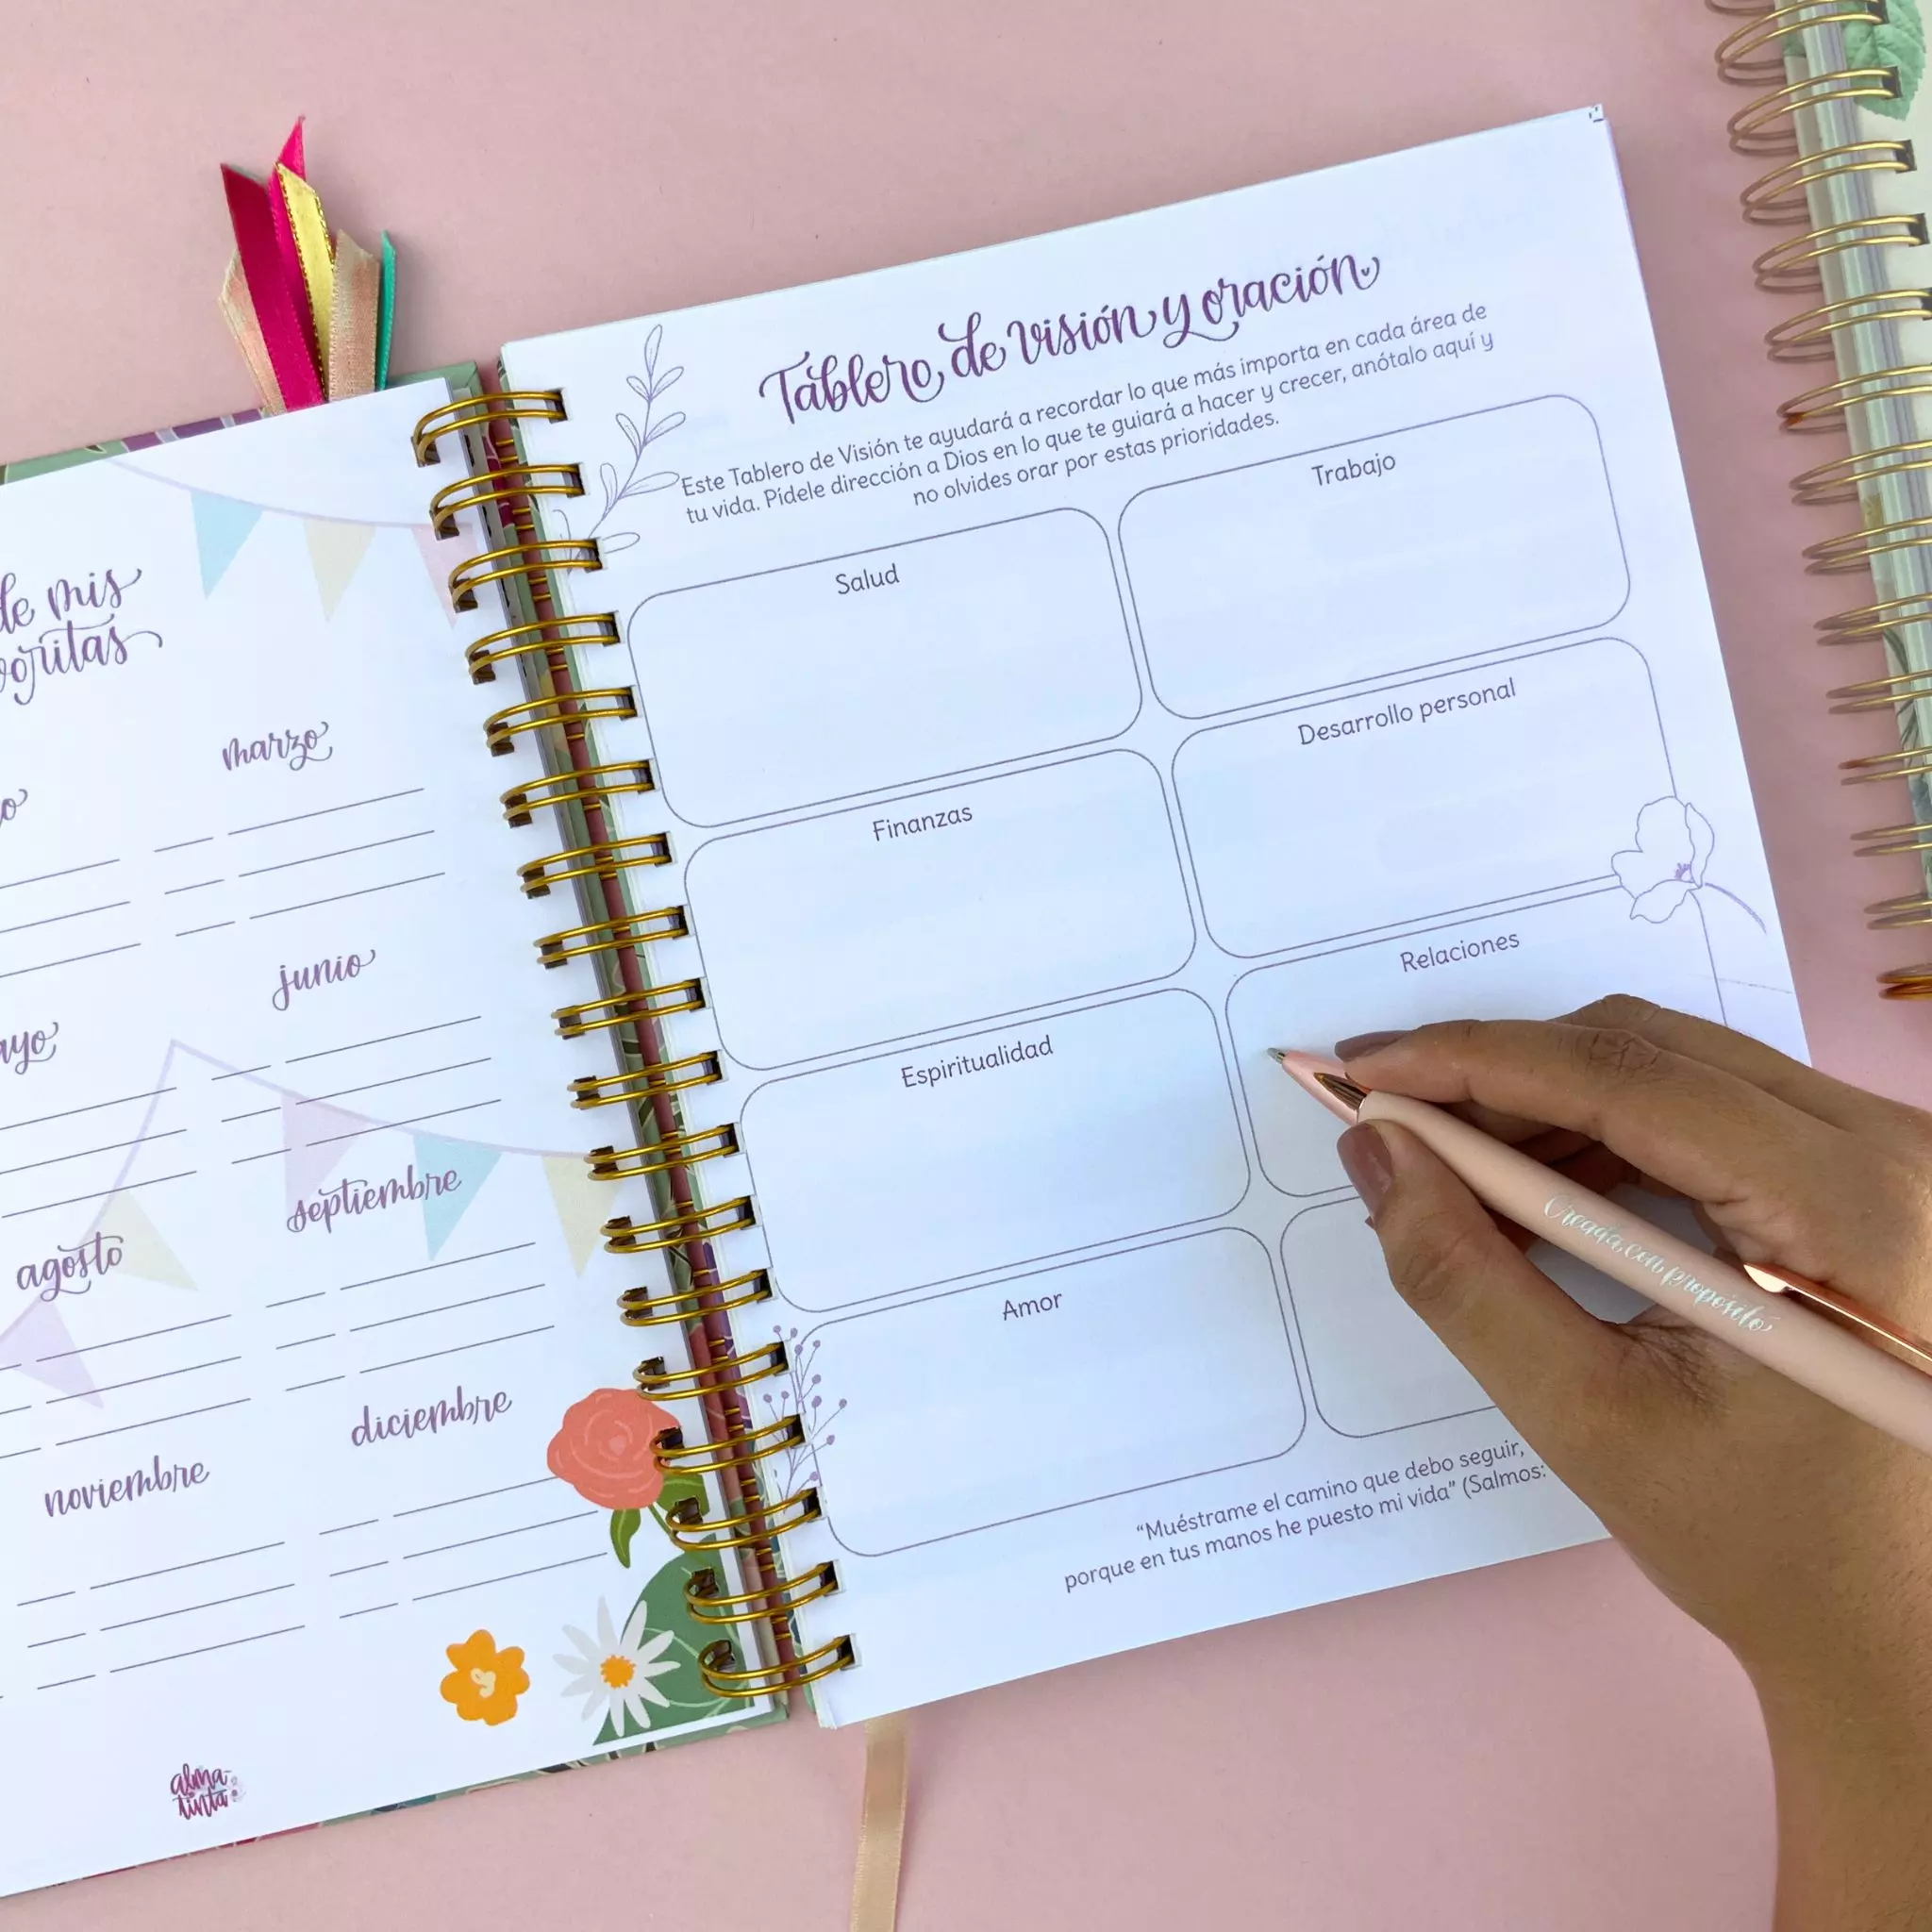 de mis
marzo
junio
septiembre
agosto
diciembre
noviembre
alma-
tinta
Tablero de visión y oración
Este Tablero de Visión te ayudará a recordar lo que más importa en cada área de
tu vida. Pídele dirección a Dios en lo que te guiará a hacer y crecer, anótalo aquí y
no olvides orar por estas prioridades.
Salud
Trabajo
Finanzas
Desarrollo personal
Espiritualidad
Relaciones
Amor
“Muéstrame el camino que debo seguir,
porque en tus manos he puesto mi vida” (Salmos:
Creada con propósito